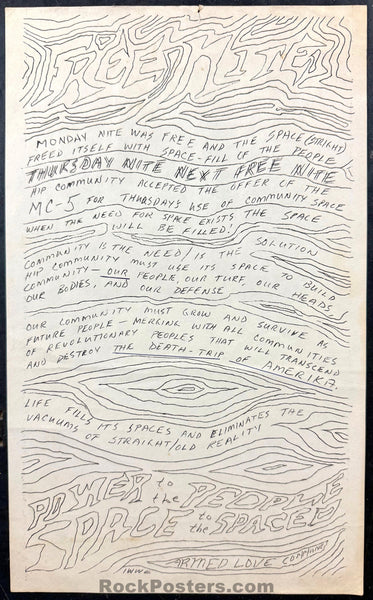 FREE NITE!
MONDAY NITE WAS FREE AND THE SPACE (STRIGHT)
FREED ITSELF WITH SPACE-FILL OF THE PEOPLE
THURSDAY NITE NEXT FREE NITE
HIP COMMUNITY ACCEPTED THE OFFER OF THE
MC-5 FOR THURSDAYS USE OF COMMUNITY SPACE
WHEN THE NEED FOR SPACE EXISTS THE SPACE
WILL BE FILLED!
COMMUNITY IS THE NEED/IS THE SOLUTION
HIP COMMUNITY MUST USE ITS SPACE TO BUILD
COMMUNITY — OUR PEOPLE, OUR TURF, OUR HEADS,
OUR BODIES, AND OUR DEFENSE
OUR COMMUNITY MUST GROW AND SURVIVE AS
FUTURE PEOPLE - MERGING WITH ALL COMMUNITIES
OF REVOLUTIONARY PEOPLES THAT WILL TRANSCEND
AND DESTROY THE DEATH-TRIP OF AMERIKA.
LIFE FILLS ITS SPACES AND ELIMINATES THE
VACUUMS OF STRAIGHT/OLD REALITY
POWER to the PEOPLE
SPACE to the SPACED
IWW ARMED LOVE
RockPosters.com